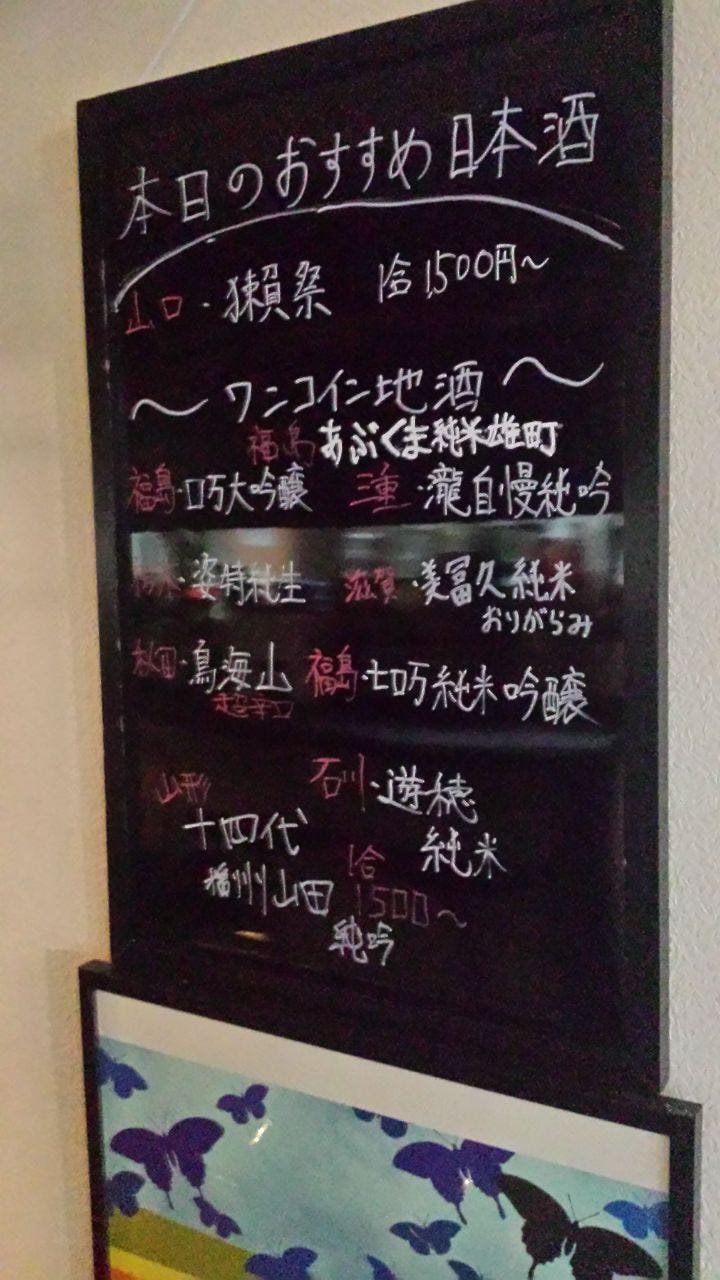 本日のおすすめ日本酒
山口・獺祭 1合1,500円〜
〜ワンコイン地酒〜
福島 あぶくま純米雄町
福島・ロ万大吟醸 三重・瀧自慢純吟
栃木・姿特純生 滋賀・美冨久純米
おりがらみ
秋田・鳥海山 福島・七ロ万純米吟醸
超辛口
山形 石川・遊穂
十四代 純米
播州山田 1合
1500〜
純吟